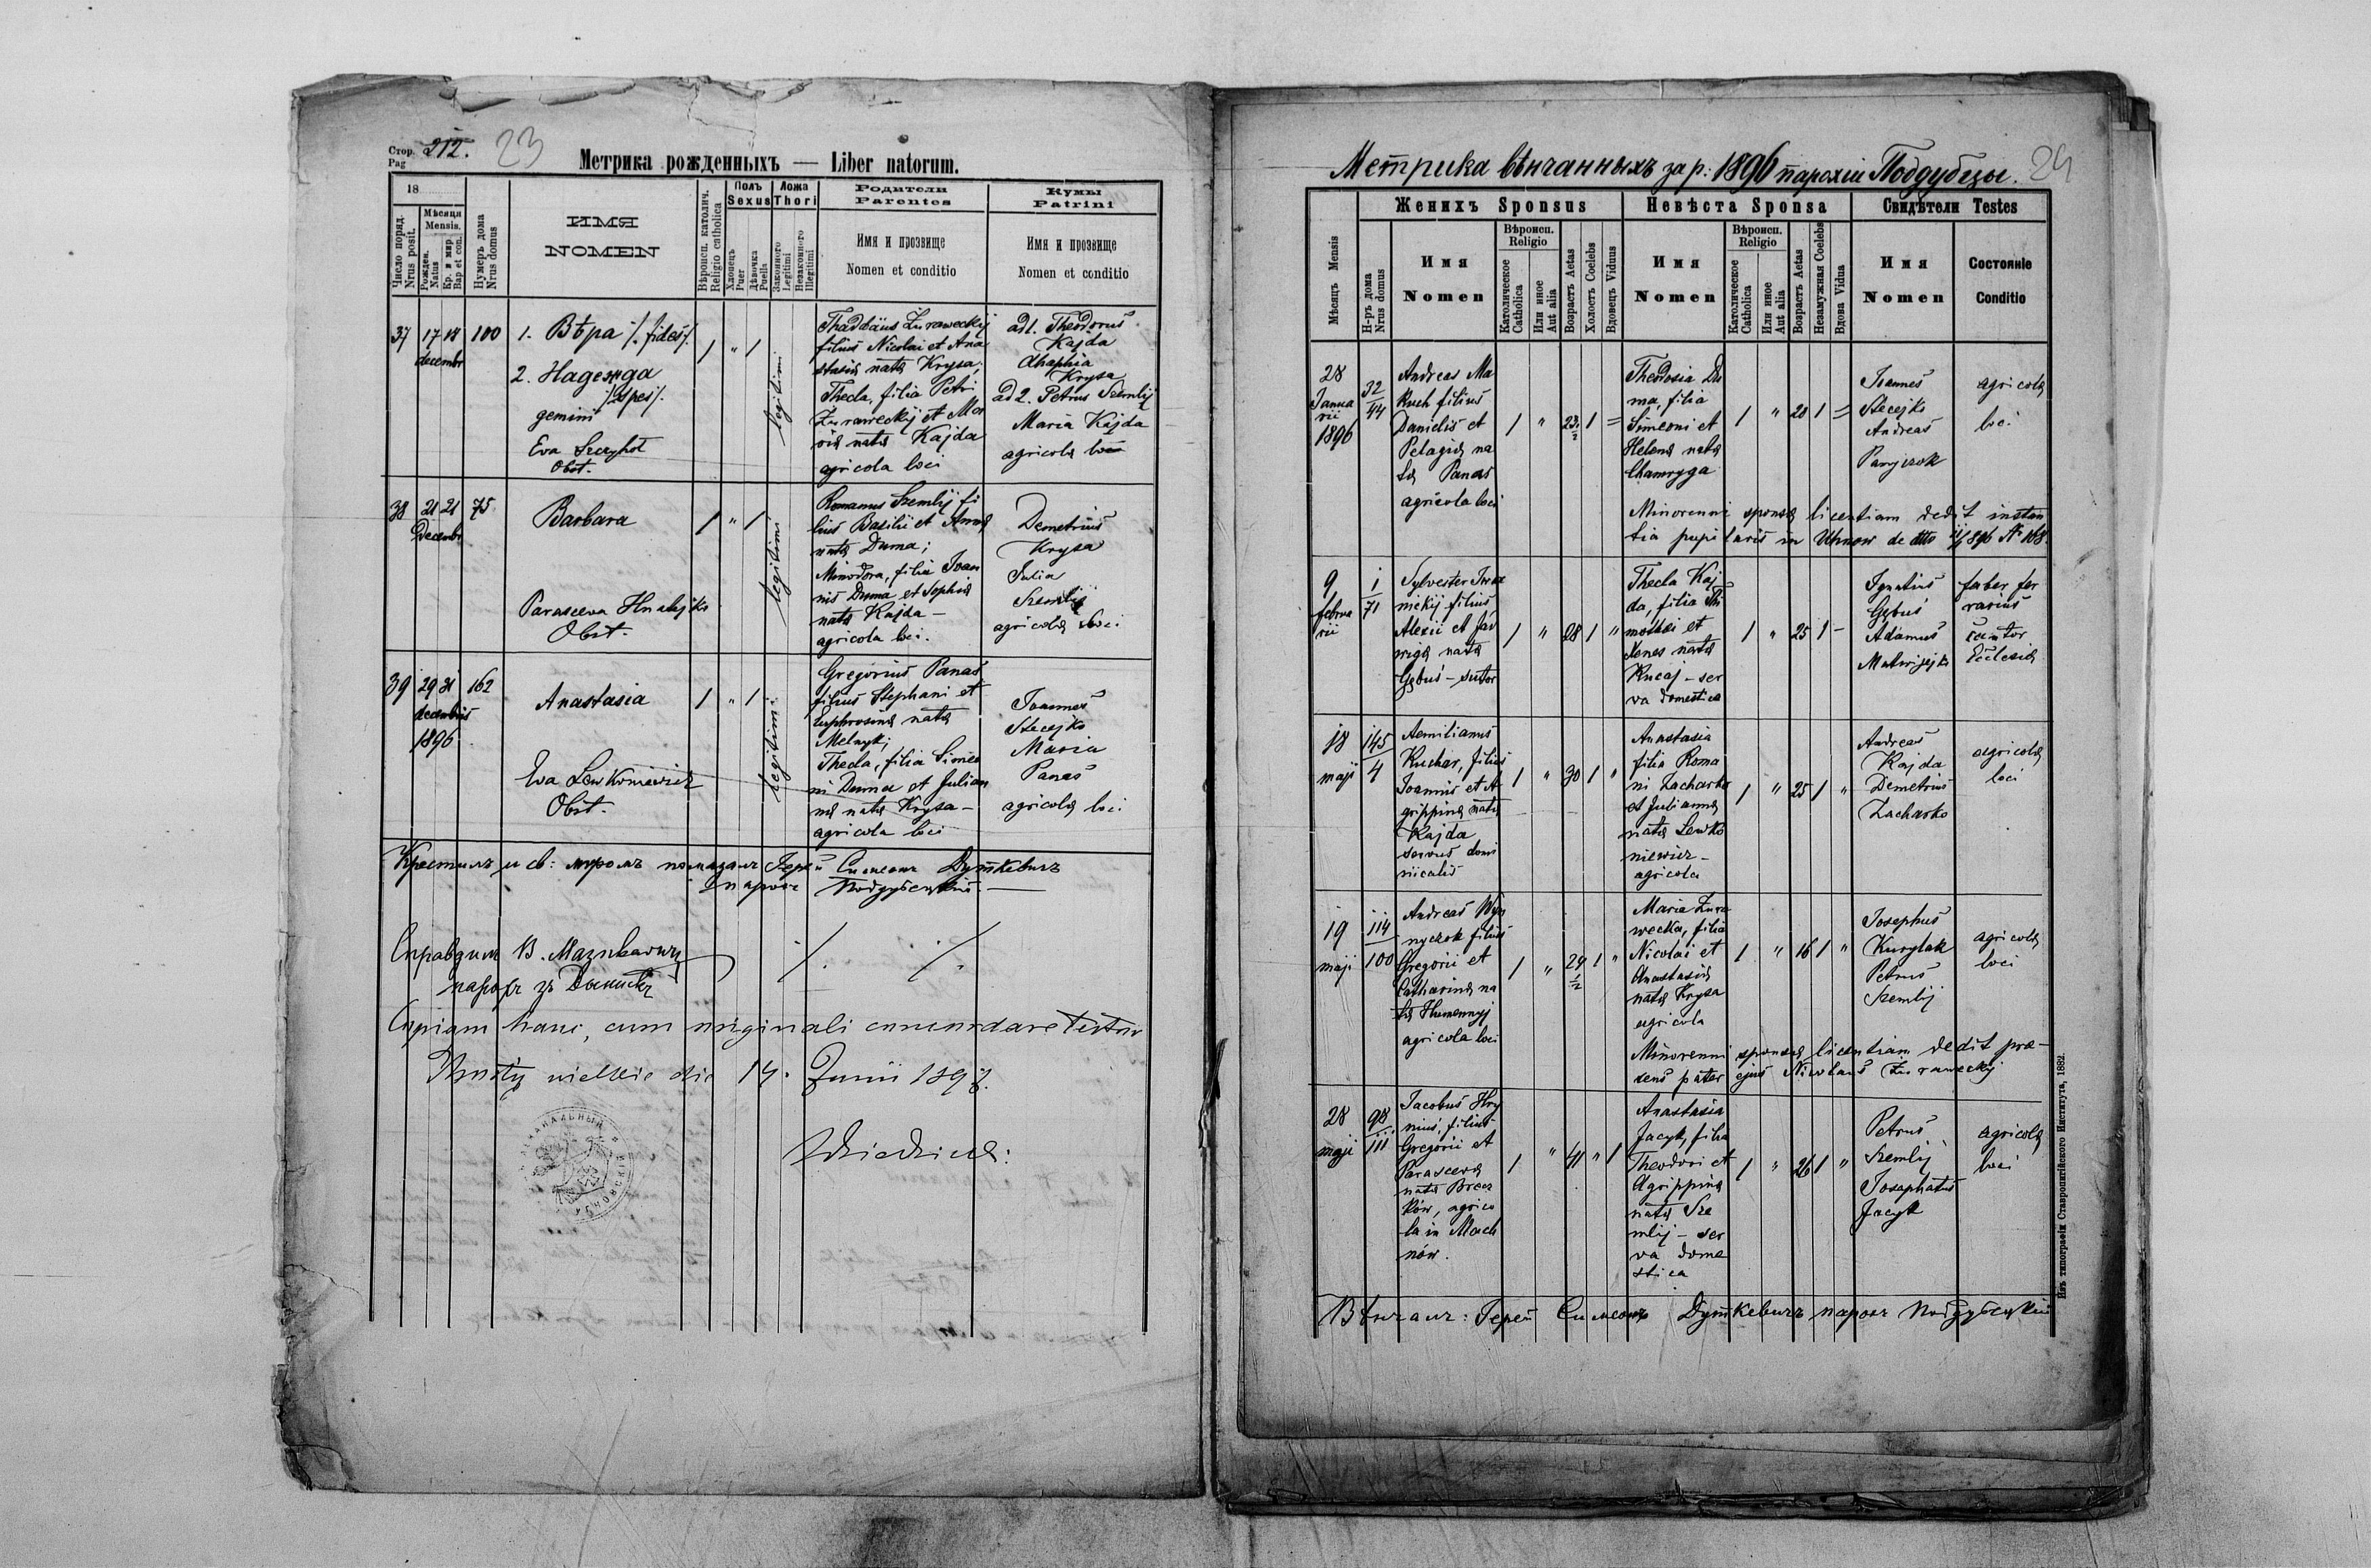 Стор. 212. 23
Pag
Метрика рожденныхъ — Liber natorum.
18
Число поряд. Nrus posit.
Мѣсяця Mensis.
Рожден. Natus
Кр. и мир. Bap et con.
Нумеръ дома Nrus domus
ИМЯ
NOMEN
Вѣроисп. католич. Religio catholica
Полъ
Sexus
Хлопецъ Puer
Дѣвочка Puella
Ложа
Thori
Законного Legitimi
Незаконного Illegitimi
Родители
Parentes
Имя и прозвище
Nomen et conditio
Кумы
Patrini
Имя и прозвище
Nomen et conditio
37 17 18 100
decembr
1. Вѣра /. fides /.
2. Надежда
/. spes /.
gemini
Eva
Obst.
1 " 1
legitimi
Thaddäus Żuraweckij
filius Nicolai et Ana
stasiæ natæ Krysa;
Thecla, filia Petri
Żuraweckij et Mar
iæ natæ Kajda
agricola loci
ad 1. Theodorus
Kajda
Ahaphia
Krysa
ad 2. Petrus Szemlij
Maria Kajda
agricolæ loci
38 21 21 75
Decembr
Barbara
Parasceva Hnatejko
Obst.
1 " 1
legitimi
Romanus Szemlij fi
lius Basilii et Annæ
natæ Duma;
Minodora, filia Joan
nis Duma et Sophiæ
natæ Kajda —
agricola loci.
Demetrius
Krysa
Julia
Szemlij
agricolæ loci
39 29 31 162
decembris
1896
Anastasia
Eva Lewkoniewicz
Obst.
1 " 1
legitimi
Gregorius Panas
filius Stephani et
Euphrosinæ natæ
Melnyk;
Thecla, filia Simeo
ni Duma et Julian
næ natæ Krysa —
agricola loci
Joannes
Stecejko
Maria
Panas
agricolæ loci
Крестилъ и св: муромъ помазалъ Іерей Симеонъ Дуткевичъ
парохъ Поддубецкій. —
Справдилъ В.
парохъ зъ
Copiam hanc, cum originali concordare testor
die 14. Junii 1897.
Метрика вѣнчанныхъ за р: 1896 парохіи Поддубцы. 24
Мѣсяцъ Mensis
Н-ръ дома Nrus domus
Женихъ Sponsus
Имя
Nomen
Вѣроисп.
Religio
Католическое Catholica
Или иное Aut alia
Возрастъ Aetas
Холостъ Coelebs
Вдовецъ Viduus
Невѣста Sponsa
Имя
Nomen
Вѣроисп.
Religio
Католическое Catholica
Или иное Aut alia
Возрастъ Aetas
Незамужная Coelebs
Вдова Vidua
Свидѣтели Testes
Имя
Nomen
Состояніе
Conditio
28
Janua
rii
1896
32
44
Andreas Ma
kuch filius
Danielis et
Pelagiæ na
tæ Panas
agricola loci
1 " 23 ½ 1 =
Theodosia Du
ma, filia
Simeoni et
Helenæ natæ
Chamryga
1 " 20 1 =
Joannes
Stecejko
Andreas
agricolæ
loci
Minorenni sponsæ licentiam dedit instan
tia pupilaris in Uhnow de dtto 896 № 168.
9
februa
rii
1
71
Sylvester
nickij filius
Alexii et
natæ
Gębuś — sutor
1 " 28 1 "
Thecla Kaj
da, filia Thi
mothei et
Xenes natæ
Kucaj — ser
va domestica
1 " 25 1 —
Ignatius
Gębuś
Adamus
Matwijejko
faber fer
rarius
cantor
Ecclesiæ
18
maji
145
4
Aemilianus
Kuchar, filius
Joannis et A
grippinæ natæ
Kajda
servus domi
nicalis
1 " 30 1 "
Anastasia
filia Roma
ni Zacharko
et Juliannæ
natæ Lewko
niewicz —
agricola
1 " 25 1 "
Andreas
Kajda
Demetrius
Zacharko
agricolæ
loci
19
maji
114
100
Andreas Wyn
nyczok filius
Gregorii et
Catharinæ na
tæ Humennyj
agricola loci
1 " 24 ½ 1 "
Maria Żura
wecka, filia
Nicolai et
Anastasiæ
natæ Krysa
agricola
1 " 16 1 "
Josephus
Kurylak
Petrus
Szemlij
agricolæ
loci
Minorenni sponsæ licentiam dedit præ-
sens pater ejus Nicolaus Żurawecky
28
maji
98
111
Jacobus Hry
niuś, filius
Gregorii et
Parascevæ
natæ
ków, agrico
la in Mach
nów.
1 " 41 " 1
Anastasia
Jacyk, filia
Theodori et
Agrippinæ
natæ Sze
mlij — ser
va dome
stica
1 " 26 1 "
Petrus
Szemlij
Josaphatus
Jacyk
agricolæ
loci
Вѣнчалъ: Іерей Симеонъ Дуткевичъ парохъ Поддубецкій
Изъ типографіи Ставропигійского Института, 1882.